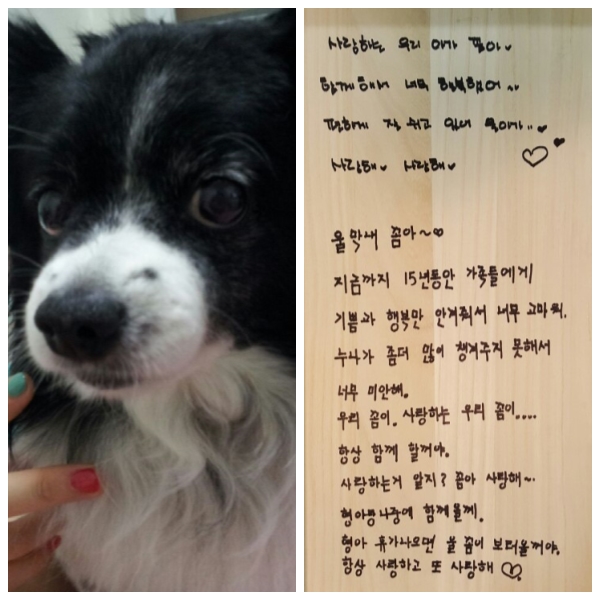 사랑하는 우리 아가 꼼아♥
함께해서 너무 행복했어~♥
편하게 잘 쉬고 있어 울아가..♥
사랑해♥ 사랑해♥ ♡♥
울 막내 꼼아~♡
지금까지 15년동안 가족들에게
기쁨과 행복만 안겨줘서 너무 고마워.
누나가 좀더 많이 챙겨주지 못해서
너무 미안해.
우리 꼼이. 사랑하는 우리 꼼이....
항상 함께 할꺼야.
사랑하는거 알지? 꼼아 사랑해~
형아랑 나중에 함께올게.
형아 휴가나오면 울 꼼이 보러올꺼야.
항상 사랑하고 또 사랑해 ♡